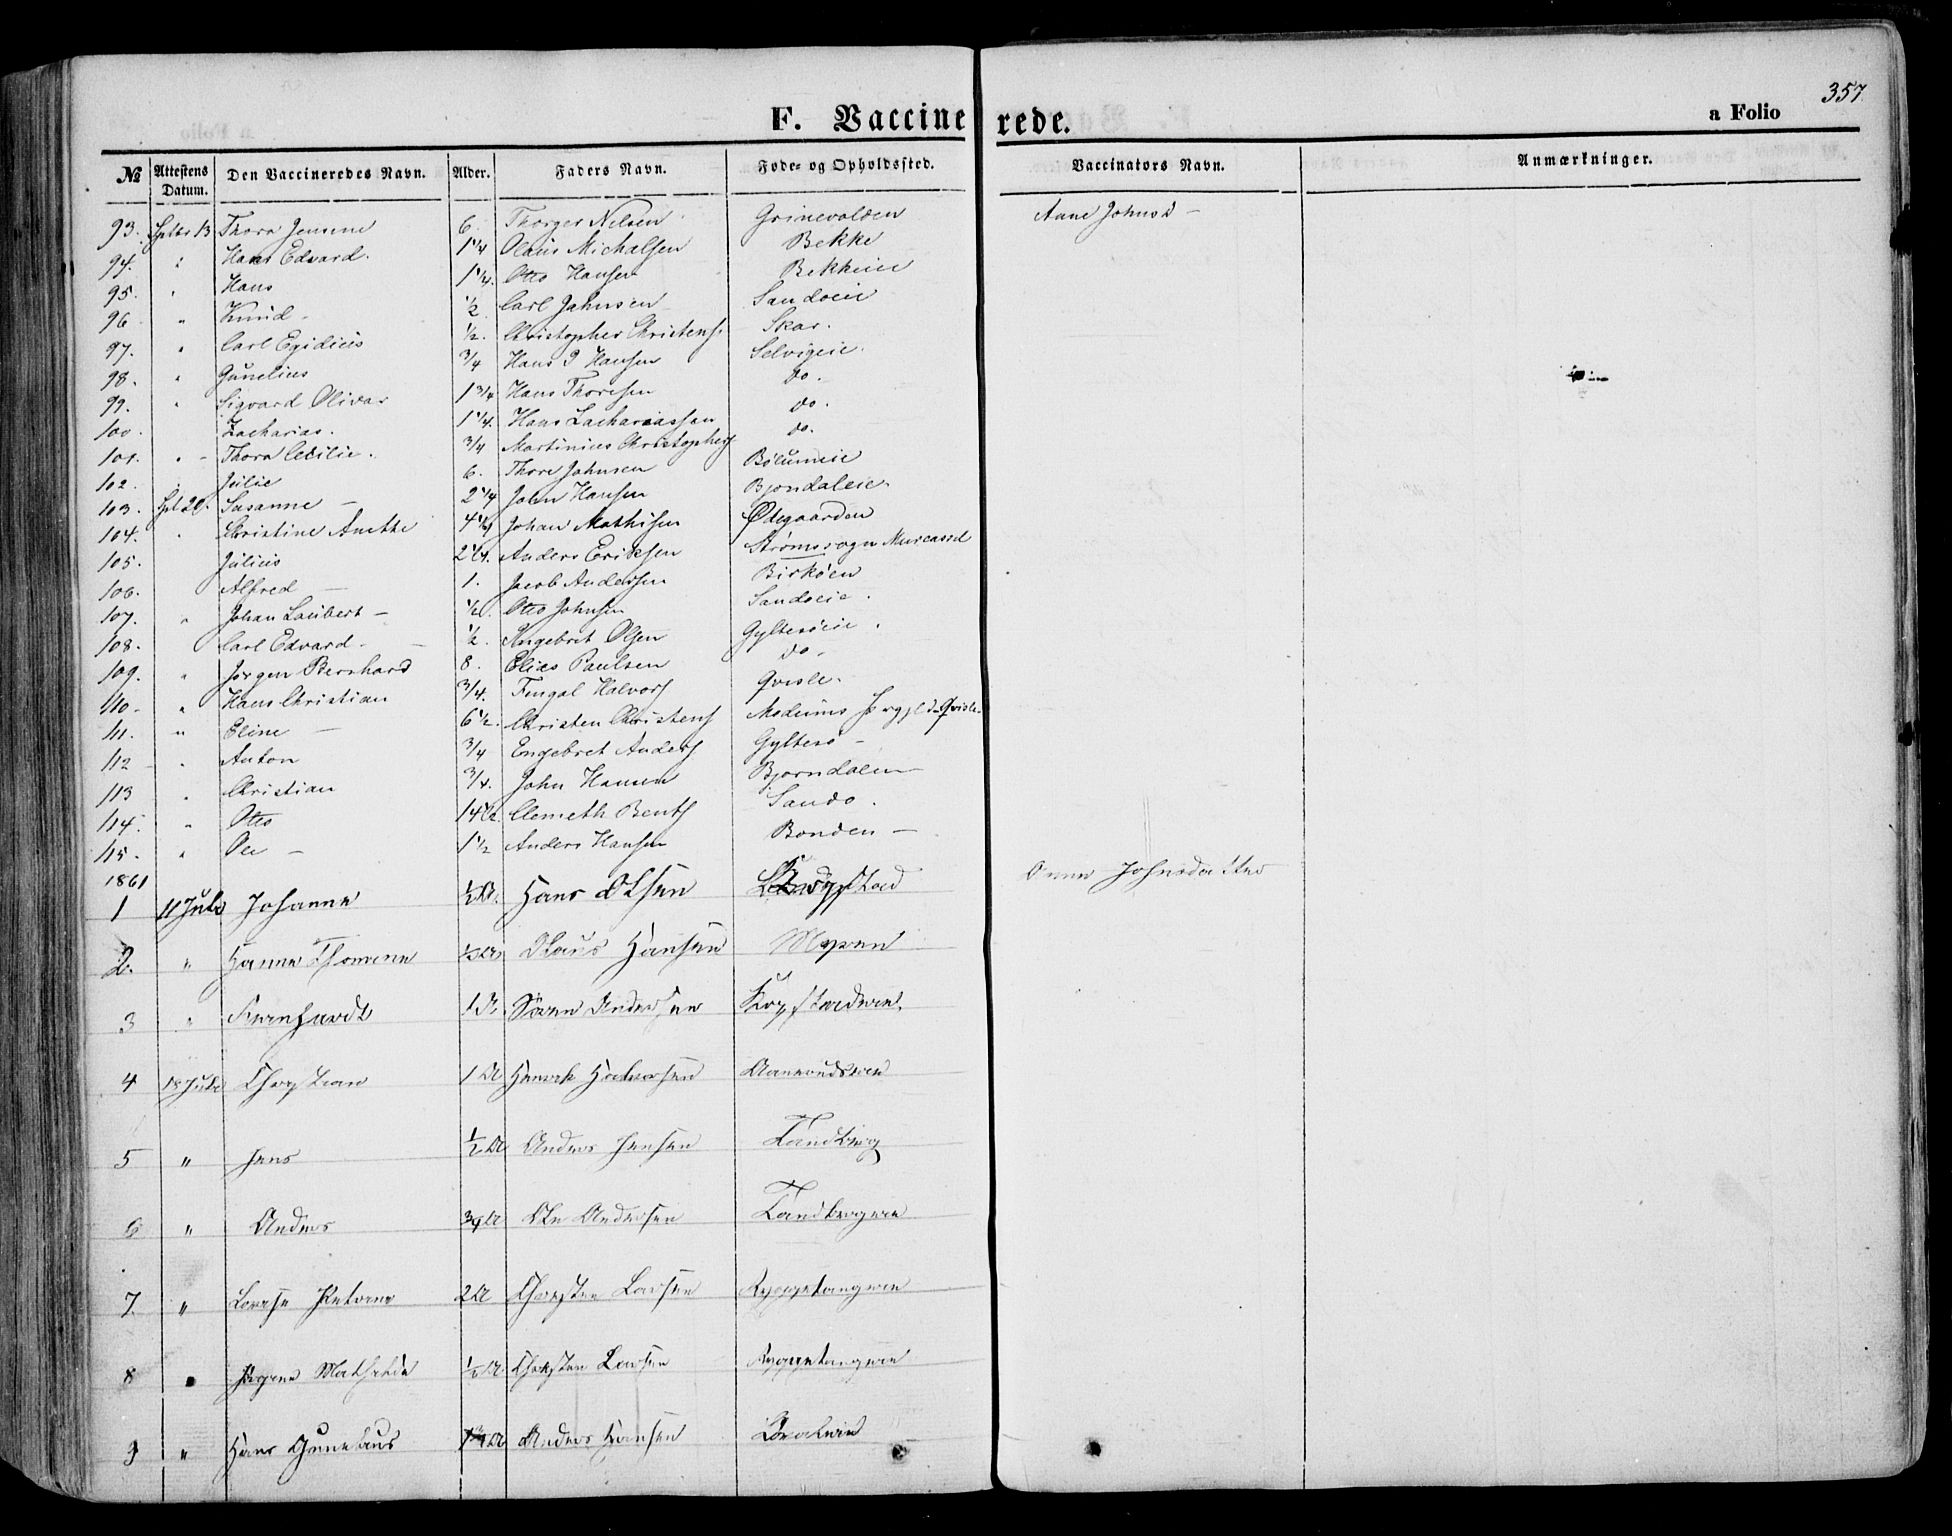 357
F. Vaccinerede.
a Folio
№ Attestens Datum. Den Vaccineredes Navn. Alder. Faders Navn. Føde- og Opholdssted. Vaccinators Navn. Anmærkninger.
93. Septbr 13 Thora Jensine 6. Thorger Nilsen Grinevolden Anne Johnsd -
94. " Hans Edvard. 1 1/4 Olaus Michalsen Bekke
95. " Hans 1 1/4. Otto Hansen Bekkeeie
96 " Knud - 1/2 Carl Jahnsen Sandoeie
97. " Carl Egidius 1/2. Christopher Christens. Skar.
98. " Gunelius 3/4 Hans P Hansen Selvigeie.
99. " Sigvard Olivar 1 3/4 Hans Thoresen do.
100. Zacharias. 1 1/4. Hans Zachariassen do.
101. " - Thora Cecilie. 3/4 Martinius Christophers do.
102. " Julie 6. Thore Jahnsen
103. Spt 20. Susanne - 2 1/4 John Hansen Bjondaleie.
104. " Christine Anette Johan Mathisen Ødegaarden
105. Julius Anders Eriksen Strømssogn
106. Alfred - 1. Jacob Andersen Birköen
107. " Johan Laubert - 1/2. Otto Johnsen Sandoeie.
108. Carl Edvard. - 1/2. Ingebret Olsen Gylteröeie.
109. " Jørgen Bernhard 8. Elias Paulsen do -
110. " Hans Christian 3/4. Fingal Halvors Qvisle.
111. " Eline - 6 1/2. Christen Christens Modums
112 - " Anton 3/4 Engebret Anders Gylterö -
113 " Christian 3/4. John Hansen Bjorndalen
114. " Otto Clemeth Bents Sando.
115. " Ole - 1 1/2 Anders Hansen Bonden -
1861
1 11 Juli Johanne 1/2 Hans Olsen Anne Johnsdatter
2. " Hanne Thomine Olaus Hansen Myren
3 " Bernhardt 1 Sören Andersen
4 18 Juli Christian 1 Henrik Halvorsen
5 " Jens 1/2 Anders Jensen Tandberg
6 " Anders 3/4 Ole Andersen Tandbergeie
7 " Lovise Petrine 2 Thorsten Larsen Ryggetangeie
8 " Mathilde 1/2 Thorsten Larsen Ryggetangeie
9 " Hans Gunelius Anders Hansen